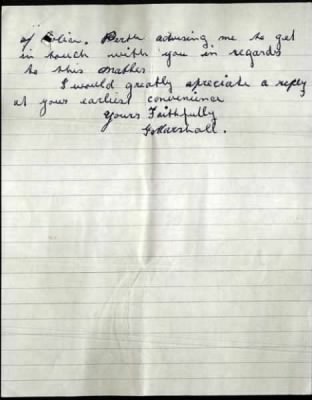 of Police. Perth advising me to get
in touch with you in regards
to this matter
I would greatly apreciate a reply
at your earliest convenience
Yours Faithfully
G. Marshall.